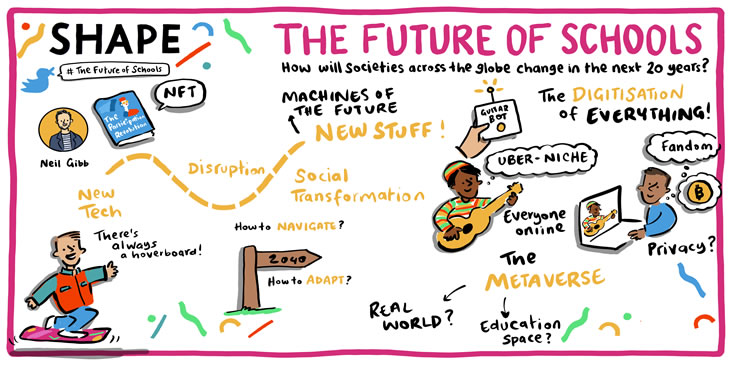 SHAPE
# The Future of Schools
THE FUTURE OF SCHOOLS
How will societies across the globe change in the next 20 years?
Neil Gibb
The
Participation
Revolution
NFT
New
Tech
Disruption
Social
Transformation
MACHINES OF
THE FUTURE
NEW STUFF!
There's
always
a hoverboard!
How to NAVIGATE?
2040
How to ADAPT?
GUITAR
BOT
The DIGITISATION
of EVERYTHING!
UBER-NICHE
Everyone
online
Fandom
B
Privacy?
The
METAVERSE
REAL
WORLD?
Education
space?